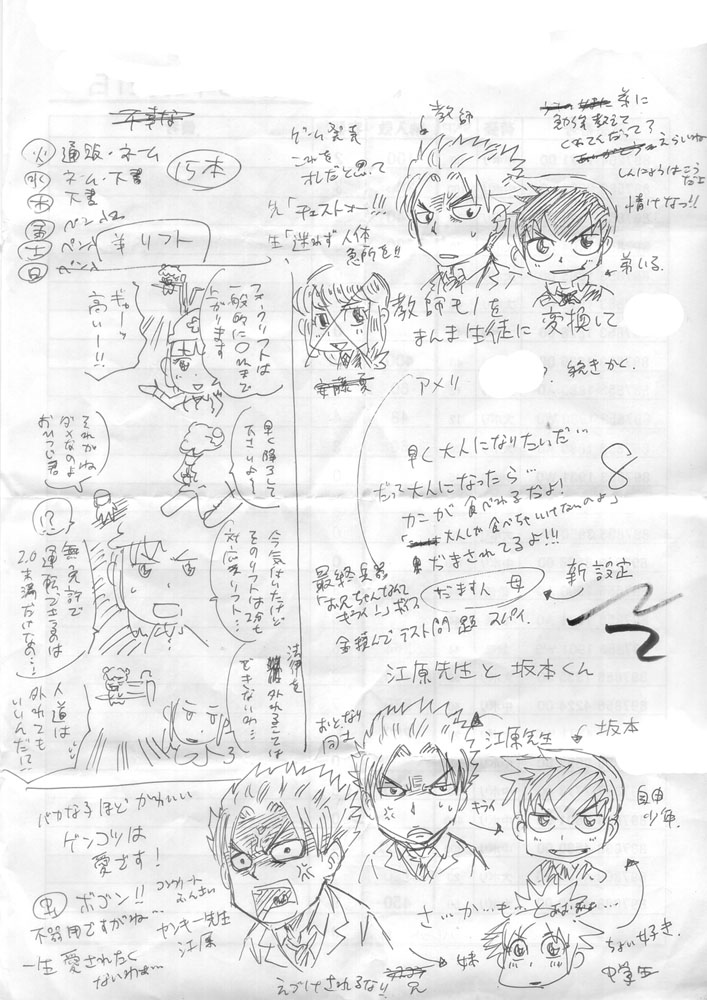 火 通販・ネーム
水 ネーム・下書
木 下書
金 ペン入
土 ペン入
日 ペン入
15本
羊リフト
ゲーム発売
これを
オレだと思って
先「チェストオー!!!
生「迷わず人体
急所を!!
教師
弟に
勉強教えて
くれてくなって?
えらいね
情けなっ!!
弟いる。
教師モノを
まんま生徒に変換して
続きかく.
安藤夏
アメリ
フォークリフトは
一般的に〇mまで
上がります
ぎゃーっ
高いー!!
早く降ろして
下さいよ〜
それがね
ダメなのよ
おひつじ君
!?
今気付いたけど
そのリフトは2分も
対応リフト…
無免許で
運転できるのは
2.0未満だけなの…
法律を
外れることは
できないわ…
人道は
外れても
いいんだ!?
早く大人になりたいだ…
だって大人になったら…
カニが食べれるだよ!
「大人しか食べちゃいけないのよ」
だまされてるよ!!!
8
だますん 母
新設定
最終兵器
「お兄ちゃんなんて
キライ!」ボイス
金積んでテスト問題スパイ.
江原先生と坂本くん
おとなり
同士
江原先生
坂本
キライ
自由
少年.
バカな子ほどかわいい
ゲンコツは
愛さす!
虫 ボゴン!!
コンクリート
ふんさい
不器用ですがね…
ヤンキー先生
江原
一生愛されたく
ないわぁ…
さ…か…も…と
妹
ちょい好き.
中学生
えづけされるなり
兄